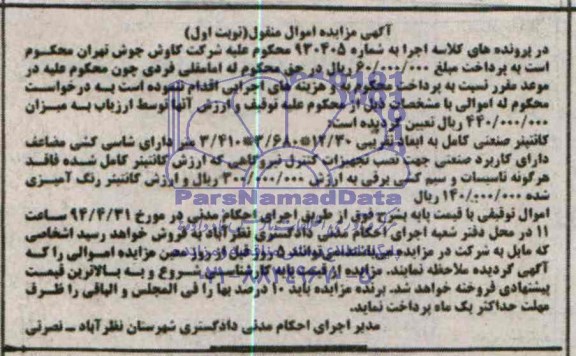 آگهی مزایده اموال منقول(نوبت اول)
در پرونده های کلاسه اجرا به شماره ۹۳۰۴۰۵ محکوم علیه شرکت کاوش جوش تهران محکوم
است به پرداخت مبلغ ۶۰/۰۰۰/۰۰۰ ریال در حق محکوم له امامقلی فردی چون محکوم علیه در
موعد مقرر نسبت به پرداخت محکوم به و هزینه های اجرایی اقدام ننموده است به درخواست
محکوم له اموالی با مشخصات ذیل از محکوم علیه توقیف وارزش آنها توسط ارزیاب به میزان
۴۴۰/۰۰۰/۰۰۰ ریال تعیین گردیده است:
کانتینر صنعتی کامل به ابعاد تقریبی ۱۲/۳۰*۳/۶۸۰*۳/۴۱۰ متر دارای شاسی کشی مضاعف
دارای کاربرد صنعتی جهت نصب تجهیزات کنترل نیروگاهی که ارزش کانتینر کامل شده فاقد
هرگونه تاسیسات و سیم کشی برقی به ارزش ۳۰۰/۰۰۰/۰۰۰ ریال و ارزش کانتینر رنگ آمیزی
شده ۱۴۰/۰۰۰/۰۰۰ ریال
اموال توقیفی با قیمت پایه بشرح فوق از طریق اجرای احکام مدنی در مورخ ۹۴/۴/۳۱ ساعت
۱۱ در محل دفتر شعبه اجرای احکام مدنی دادگستری نظرآباد به فروش خواهد رسید اشخاصی
که مایل به شرکت در مزایده می‌باشند می‌توانند ۵ روز قبل از روز معین مزایده اموالی را که
آگهی گردیده ملاحظه نمایند. مزایده از قیمت پایه کارشناسی شروع و به بالاترین قیمت
پیشنهادی فروخته خواهد شد. برنده مزایده باید ۱۰ درصد بها را فی المجلس و الباقی را ظرف
مهلت حداکثر یک ماه پرداخت نماید.
مدیر اجرای احکام مدنی دادگستری شهرستان نظرآباد ـ نصرتی
ParsNamadData